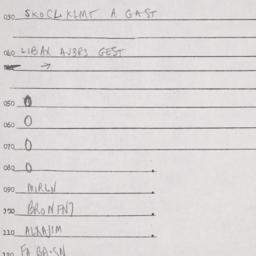 030 SKOCLKLMT A GAST
040 LIBAX AJ3R3 GEST
→
050 0
060 0
070 0
080 0
090 MIRLN
100 BRONFN7
110 ALKAJIM